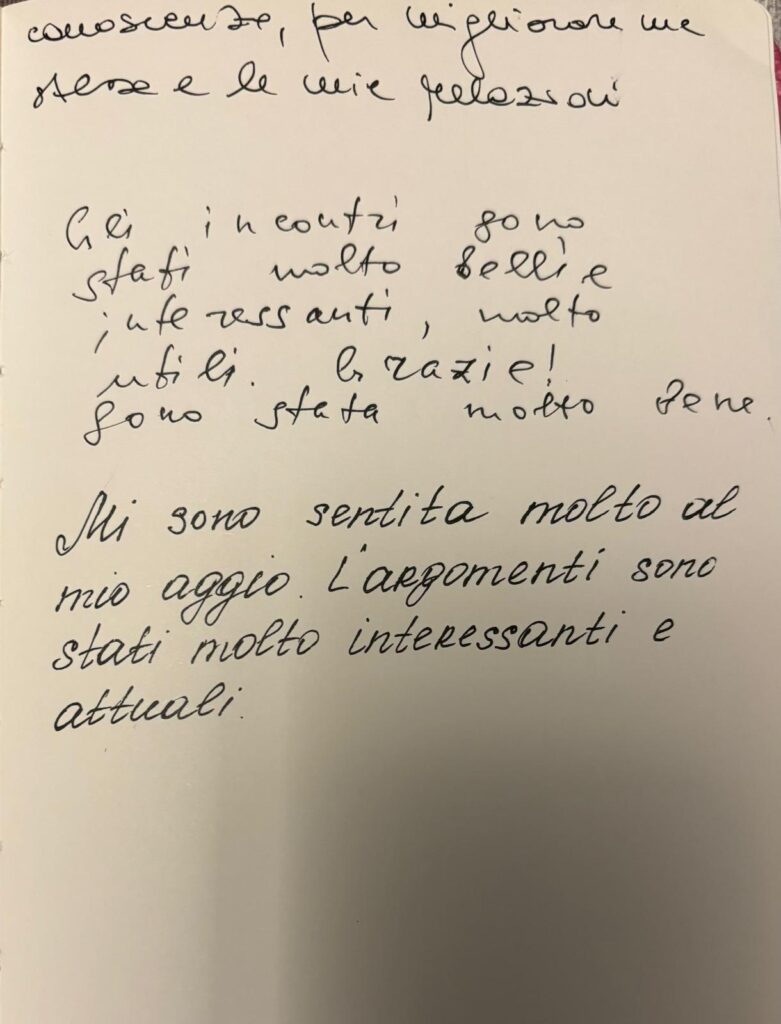 conoscenze, per migliorare me
stessa e le mie relazioni
Gli incontri sono
stati molto belli e
interessanti, molto
utili. Grazie!
Sono stata molto bene.
Mi sono sentita molto al
mio aggio. L'argomenti sono
stati molto interessanti e
attuali.